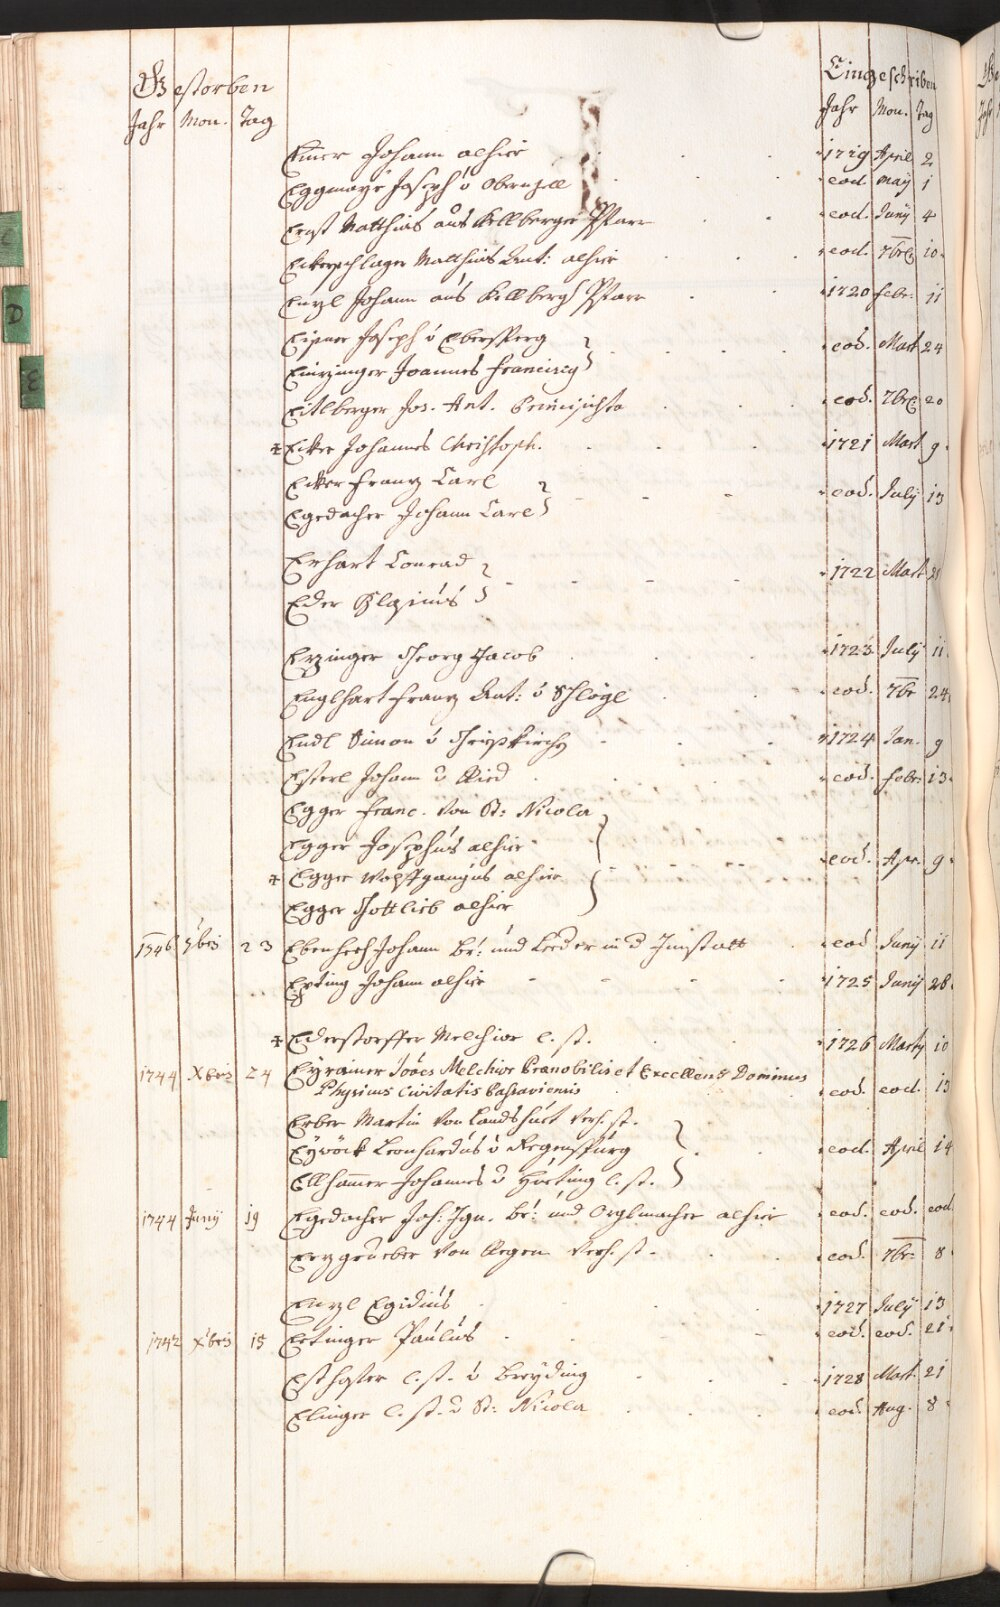 Gestorben Eingeschriben
Jahr Mon. Tag Jahr Mon. Tag
Johann alhier 1719 April 2
Eggmayr Joseph v Obernzell eod. May 1
Ernst Matthias aus Kellberger Pfarr eod. Juny 4
Eckerschlager Matthias Ant: alhier eod. 7bris 10
Enzl Johann aus Kellberg Pfarr 1720 febr. 11
Eisner Joseph v Ebersperg eod. Mart 24
Einzinger Joannes Francisc9
Eitlberger Jos. Ant. eod. 7bris 20
+ Ecker Johannes Christoph. 1721 Mart 9
Ecker Franz Carl eod. July 13
Egedacher Johann Carl
Erhart Conrad 1722 Mart
Eder
Erzinger Georg Jacob 1723 July 11
Englhart Franz Ant: v Schlögl eod. 7br 24
Endl Simon v Griesskirch 1724 Jan. 9
Esterl Johann v Ried eod. febr: 13
Egger Franc. von St: Nicola
Egger Josephus alhier eod. Apr. 9
+ Egger Wolffgangus alhier
Egger Gottlieb alhier
1746 9bris 23 Ebenhech Johann Br: und in d Innstatt eod Juny 11
Johann alhier 1725 Juny 28
+ Ederstorffer Melchior l. st. 1726 Marty 10
1744 Xbris 24 Eyrainer Joaes Melchior Praenobilis et Excellens Dominus
Physicus Civitatis Passaviensis eod. eod. 13
Erber Martin von Landshuet verh. st.
Eyböck Leonhardus v Regenspurg eod. April 14
Ellhamer Johannes v l. st.
1744 Juny 19 Egedacher Joh: Ign. Br: und Orglmacher alhier eod. eod. eod.
von Regen verh. st. eod. 7br: 8
Enzl Egidius 1727 July 13
1742 Xbris 15 Ertinger Paulus eod. eod. 21
l. st. v 1728 Mart. 21
Elinger l. st. v St: Nicola eod. Aug. 8
C
D
E